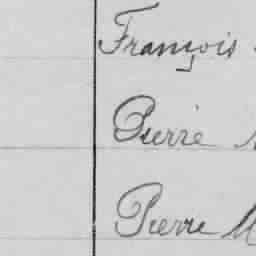 François
Pierre
Pierre M